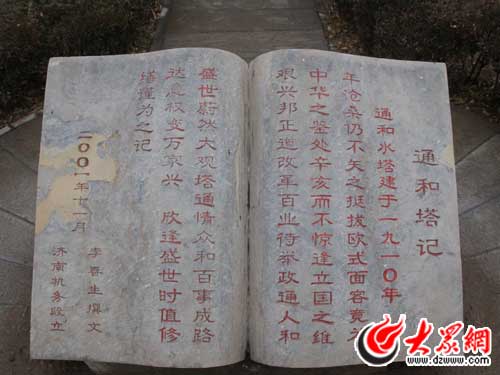 通和塔记
通和水塔建于一九一〇年
年沧桑仍不失之挺拔欧式面容竟为
中华之鉴处辛亥而不惊逢立国之维
艰兴邦正迨改革百业待举政通人和
盛世蔚然大观塔通情众和百事成路
达权变万家兴 欣逢盛世时值修
塔谨为之记
二〇〇一年十一月
李喜生撰文
济南机务段立
大众网
www.dzwww.com